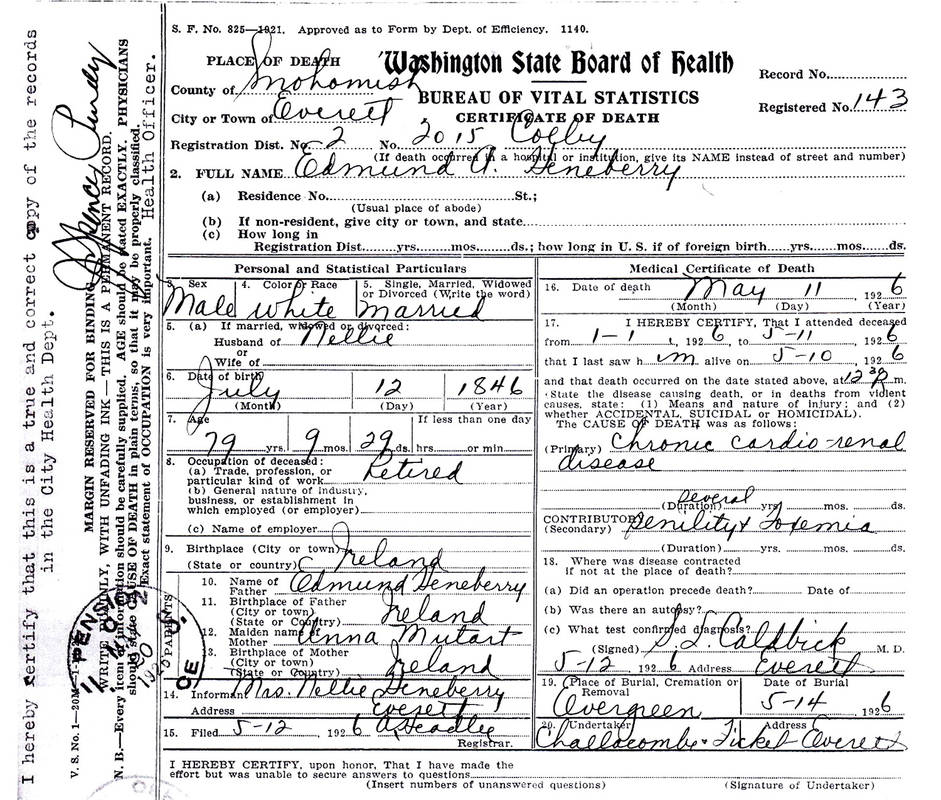 S. F. No. 825—1921. Approved as to Form by Dept. of Efficiency. 1140.
PLACE OF DEATH
Washington State Board of Health
County of Snohomish
Record No.
BUREAU OF VITAL STATISTICS
City or Town of Everett
Registered No. 143
CERTIFICATE OF DEATH
Registration Dist. No. 2 No. 2015 Colby
(If death occurred in a hospital or institution, give its NAME instead of street and number)
2. FULL NAME Edmund A. Heneberry
(a) Residence No. St.;
(Usual place of abode)
(b) If non-resident, give city or town, and state
(c) How long in
Registration Dist. yrs. mos. ds.; how long in U. S. if of foreign birth yrs. mos. ds.
Personal and Statistical Particulars
3. Sex 4. Color or Race 5. Single, Married, Widowed
or Divorced (Write the word)
Male White Married
5. (a) If married, widowed or divorced:
Husband of Nellie
or
Wife of
6. Date of birth
July 12 1846
(Month) (Day) (Year)
7. Age If less than one day
79 yrs. 9 mos. 29 ds. hrs. or min.
8. Occupation of deceased:
(a) Trade, profession, or
particular kind of work Retired
(b) General nature of industry,
business, or establishment in
which employed (or employer)
(c) Name of employer
9. Birthplace (City or town)
(State or country) Ireland
10. Name of
Father Edmund Heneberry
11. Birthplace of Father
(City or town)
(State or Country) Ireland
12. Maiden name of
Mother Anna Mutart
13. Birthplace of Mother
(City or town)
(State or Country) Ireland
PARENTS
14. Informant Mrs. Nellie Heneberry
Address Everett
15. Filed 5-12 1926 A. Headlee
Registrar.
Medical Certificate of Death
16. Date of death May 11, 1926
(Month) (Day) (Year)
17. I HEREBY CERTIFY, That I attended deceased
from 1-1, 1926, to 5-11, 1926
that I last saw him alive on 5-10 1926
and that death occurred on the date stated above, at 12 30 m.
State the disease causing death, or in deaths from violent
causes, state: (1) Means and nature of injury; and (2)
whether ACCIDENTAL, SUICIDAL or HOMICIDAL).
The CAUSE OF DEATH was as follows:
(Primary) Chronic cardio-renal
disease
several
(Duration) yrs. mos. ds.
CONTRIBUTORY
(Secondary) Senility & Toxemia
(Duration) yrs. mos. ds.
18. Where was disease contracted
if not at the place of death?
(a) Did an operation precede death? Date of
(b) Was there an autopsy?
(c) What test confirmed diagnosis?
(Signed) S. L. Caldbick M. D.
5-12 1926 Address Everett
19. Place of Burial, Cremation or Removal Date of Burial
Evergreen 5-14, 1926
20. Undertaker Address
Challacombe & Fickel Everett
I HEREBY CERTIFY, upon honor, That I have made the
effort but was unable to secure answers to questions
(Insert numbers of unanswered questions) (Signature of Undertaker)
I hereby certify that this is a true and correct copy of the records
in the City Health Dept.
Health Officer.
V. S. No. 1—20M—
MARGIN RESERVED FOR BINDING
WRITE PLAINLY, WITH UNFADING INK—THIS IS A PERMANENT RECORD.
N. B.—Every item of information should be carefully supplied. AGE should be stated EXACTLY. PHYSICIANS
should state CAUSE OF DEATH in plain terms, so that it may be properly classified.
Exact statement of OCCUPATION is very important.